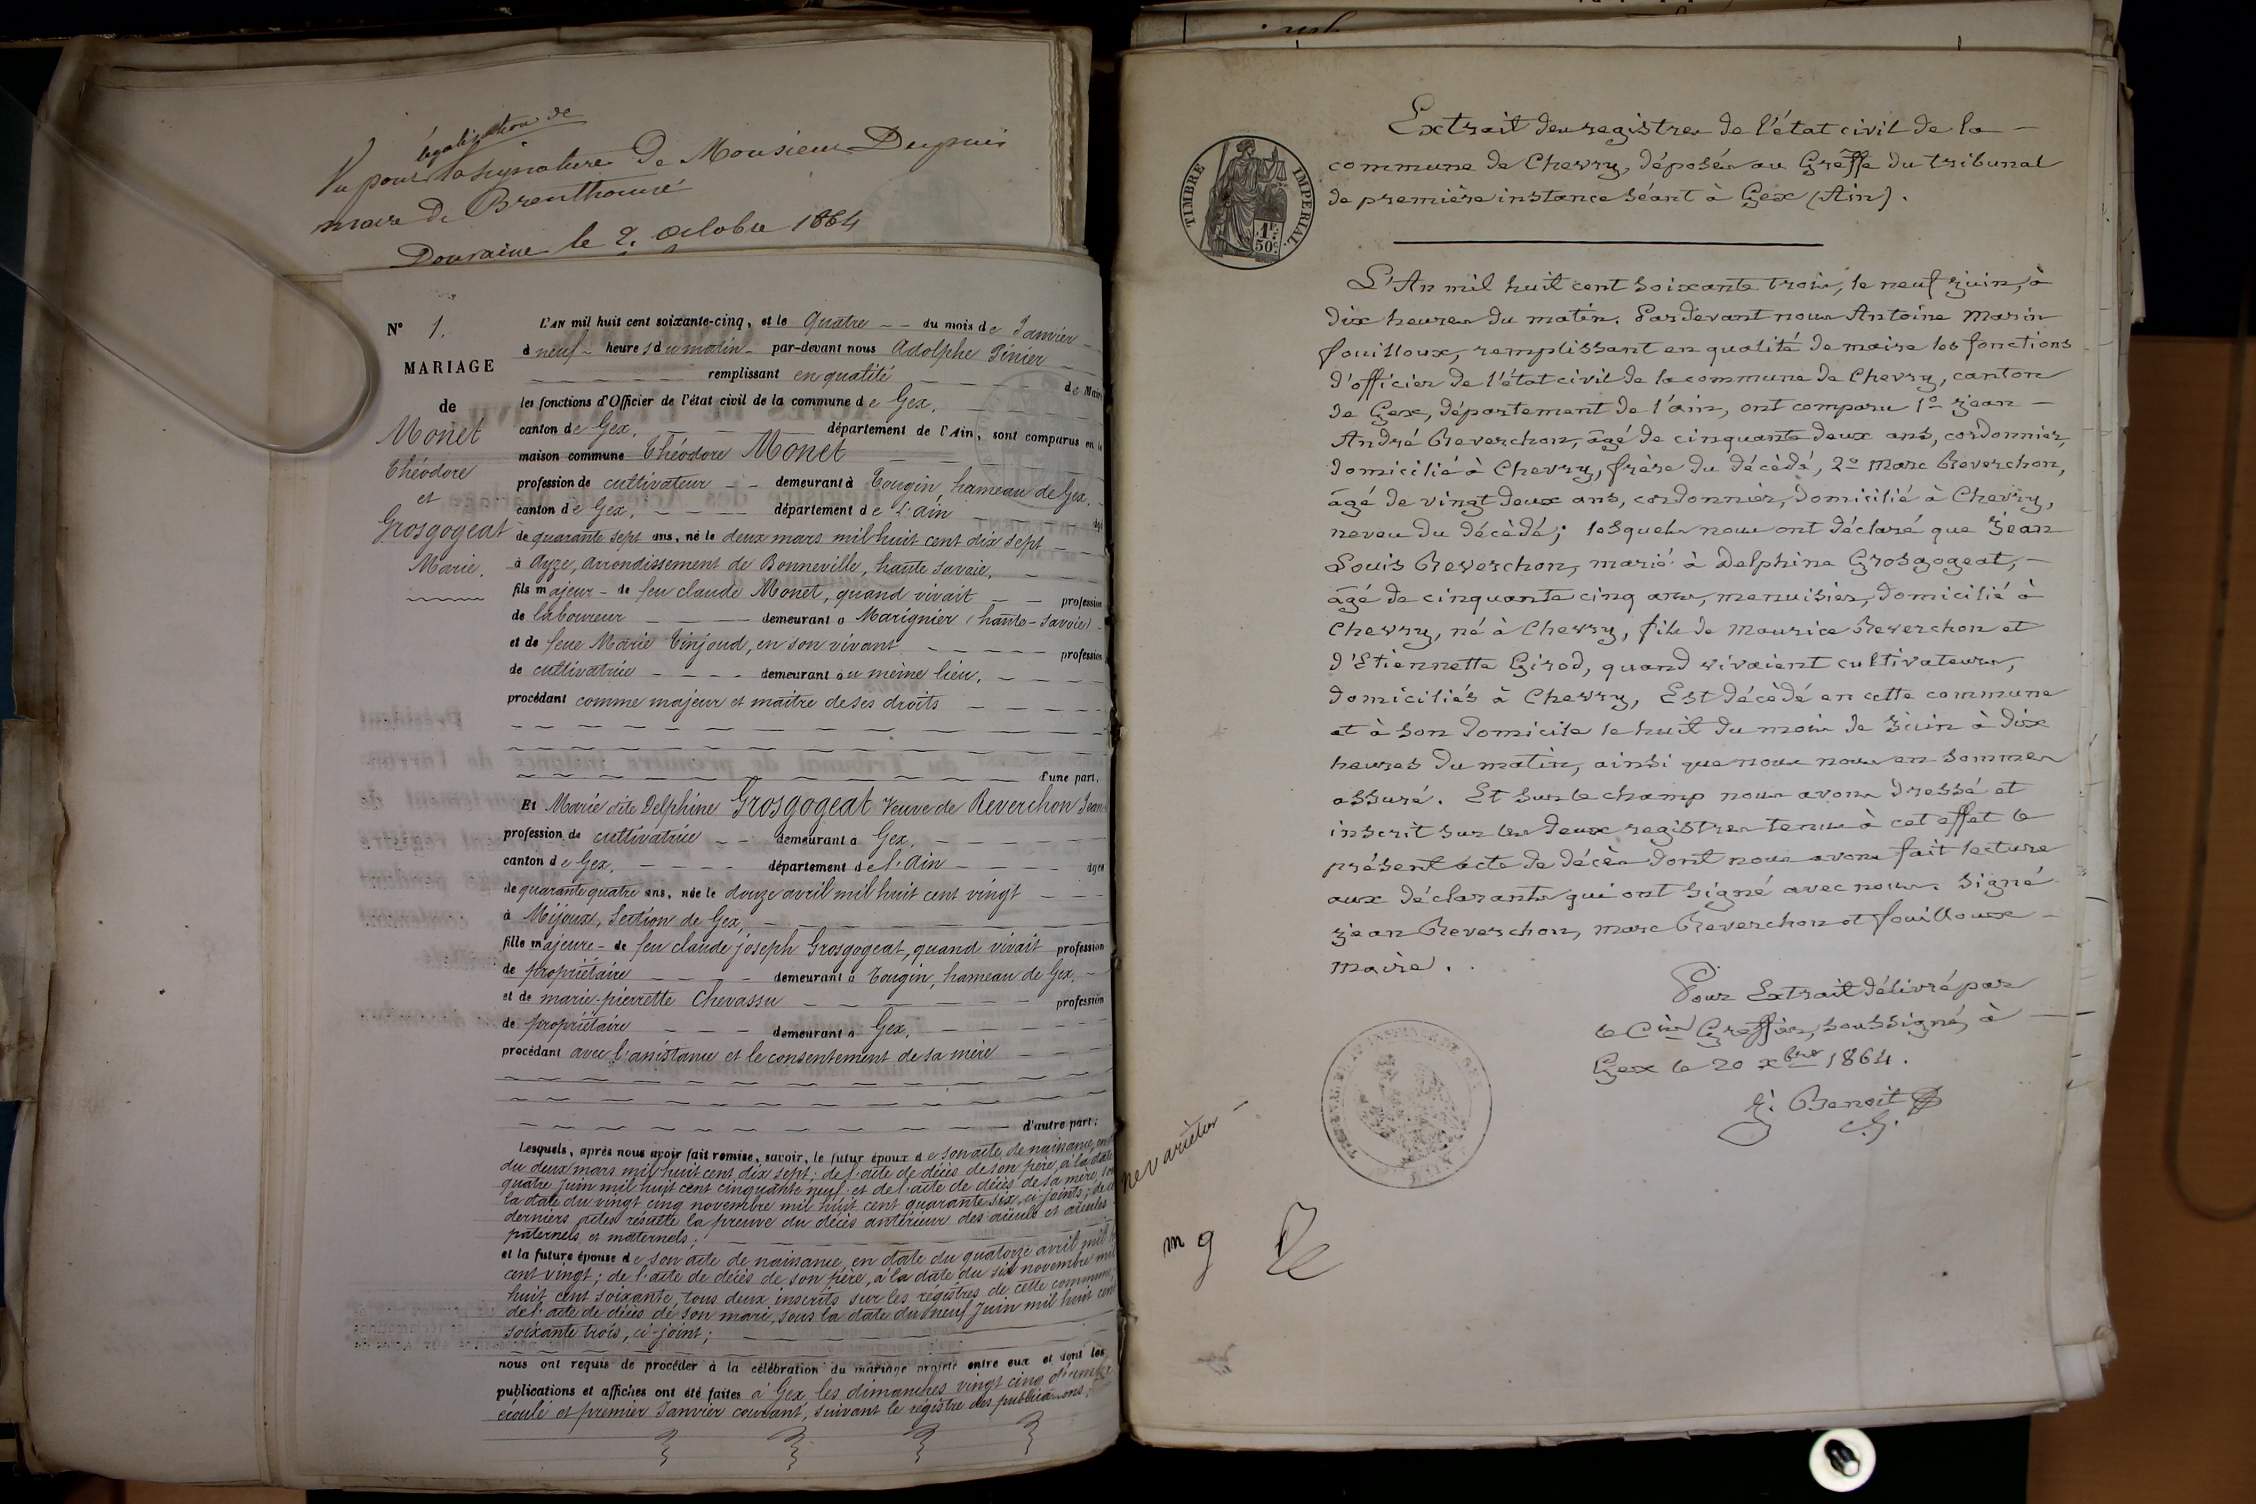 légalisation de
Vu pour la signature de Monsieur Dupuis
maire de Brenthonne
Douvaine le 2. octobre 1864
N° 1.
MARIAGE
de
Monet
Théodore
et
Grosgogeat
Marie.
L'AN mil huit cent soixante-cinq, et le Quatre -- du mois de Janvier -
à neuf - heures du matin - par-devant nous Adolphe Pinier
remplissant en qualité de Maire
les fonctions d'Officier de l'état civil de la commune de Gex,
canton de Gex, département de l'Ain, sont comparus en la
maison commune Théodore Monet
profession de cultivateur -- demeurant à Tougin, hameau de Gex,
canton de Gex, département de l'Ain âgé
de quarante sept ans, né le deux mars mil huit cent dix sept
à Ayze, arrondissement de Bonneville, haute savoie,
fils majeur - de feu claude Monet, quand vivait -- profession
de laboureur demeurant à Marignier (haute-savoie)
et de feue Marie Tinjoud, en son vivant profession
de cultivatrice demeurant au même lieu,
procédant comme majeur et maître de ses droits
d'une part.
Et Marie dite Delphine Grosgogeat Veuve de Reverchon Jean
profession de cultivatrice -- demeurant à Gex,
canton de Gex, département de l'Ain âgée
de quarante quatre ans, née le douze avril mil huit cent vingt
à Mijoux, Section de Gex,
fille majeure - de feu claude joseph Grosgogeat, quand vivait profession
de propriétaire demeurant à Tougin, hameau de Gex,
et de marie-pierrette Chevassu profession
de propriétaire demeurant à Gex,
procédant avec l'assistance et le consentement de sa mère
d'autre part;
Lesquels, après nous avoir fait remise, savoir, le futur époux de son acte de naissance, en
du deux mars mil huit cent dix sept; de l'acte de décès de son père, à la date
quatre juin mil huit cent cinquante neuf et de l'acte de décès de sa mère,
la date du vingt cinq novembre mil huit cent quarante six, ci-joints; de ces
derniers actes résulte la preuve du décès antérieur des aïeuls et aïeules
paternels et maternels;
et la future épouse de son acte de naissance, en date du quatorze avril mil
cent vingt; de l'acte de décès de son père, à la date du six novembre mil
huit cent soixante, tous deux inscrits sur les régistres de cette commune,
de l'acte de décès de son mari, sous la date du neuf Juin mil huit cent
soixante trois, ci-joint;
nous ont requis de procéder à la célébration du mariage projeté entre eux et dont les
publications et affiches ont été faites à Gex, les dimanches vingt cinq décembre
écoulé et premier Janvier courant, suivant le régistre des publications;
TIMBRE IMPERIAL.
1F.
50C.
Extrait des registres de l'état civil de la -
commune de Chevry, déposés au Greffe du tribunal
de première instance séant à Gex (Ain).
L'An mil huit cent soixante trois, le neuf juin, à
dix heures du matin. Pardevant nous Antoine Marin
fouilloux, remplissant en qualité de maire les fonctions
d'officier de l'état civil de la commune de Chevry, canton
de Gex, département de l'ain, ont comparu 1° jean -
André Reverchon, âgé de cinquante deux ans, cordonnier,
domicilié à Chevry, frère du décédé, 2° Marc Reverchon,
âgé de vingt deux ans, cordonnier, domicilié à Chevry,
neveu du décédé; lesquels nous ont déclaré que Jean
Louis Reverchon, marié à Delphine Grosgogeat, -
âgé de cinquante cinq ans, menuisier, domicilié à
Chevry, né à Chevry, fils de Maurice Reverchon et
d'Etiennette Girod, quand vivaient cultivateurs,
domiciliés à Chevry, Est décédé en cette commune
et à son domicile le huit du mois de juin à dix
heures du matin, ainsi que nous nous en sommes
assuré. Et sur le champ nous avons dressé et
inscrit sur les deux registres tenus à cet effet le
présent acte de décès dont nous avons fait lecture
aux déclarants qui ont signé avec nous. signé
jean Reverchon, marc Reverchon et fouilloux -
maire.
Pour Extrait délivré par
le Cis Greffier, soussigné, à
Gex le 20 xbre 1864.
J. Benoit
ne varietur -
m g